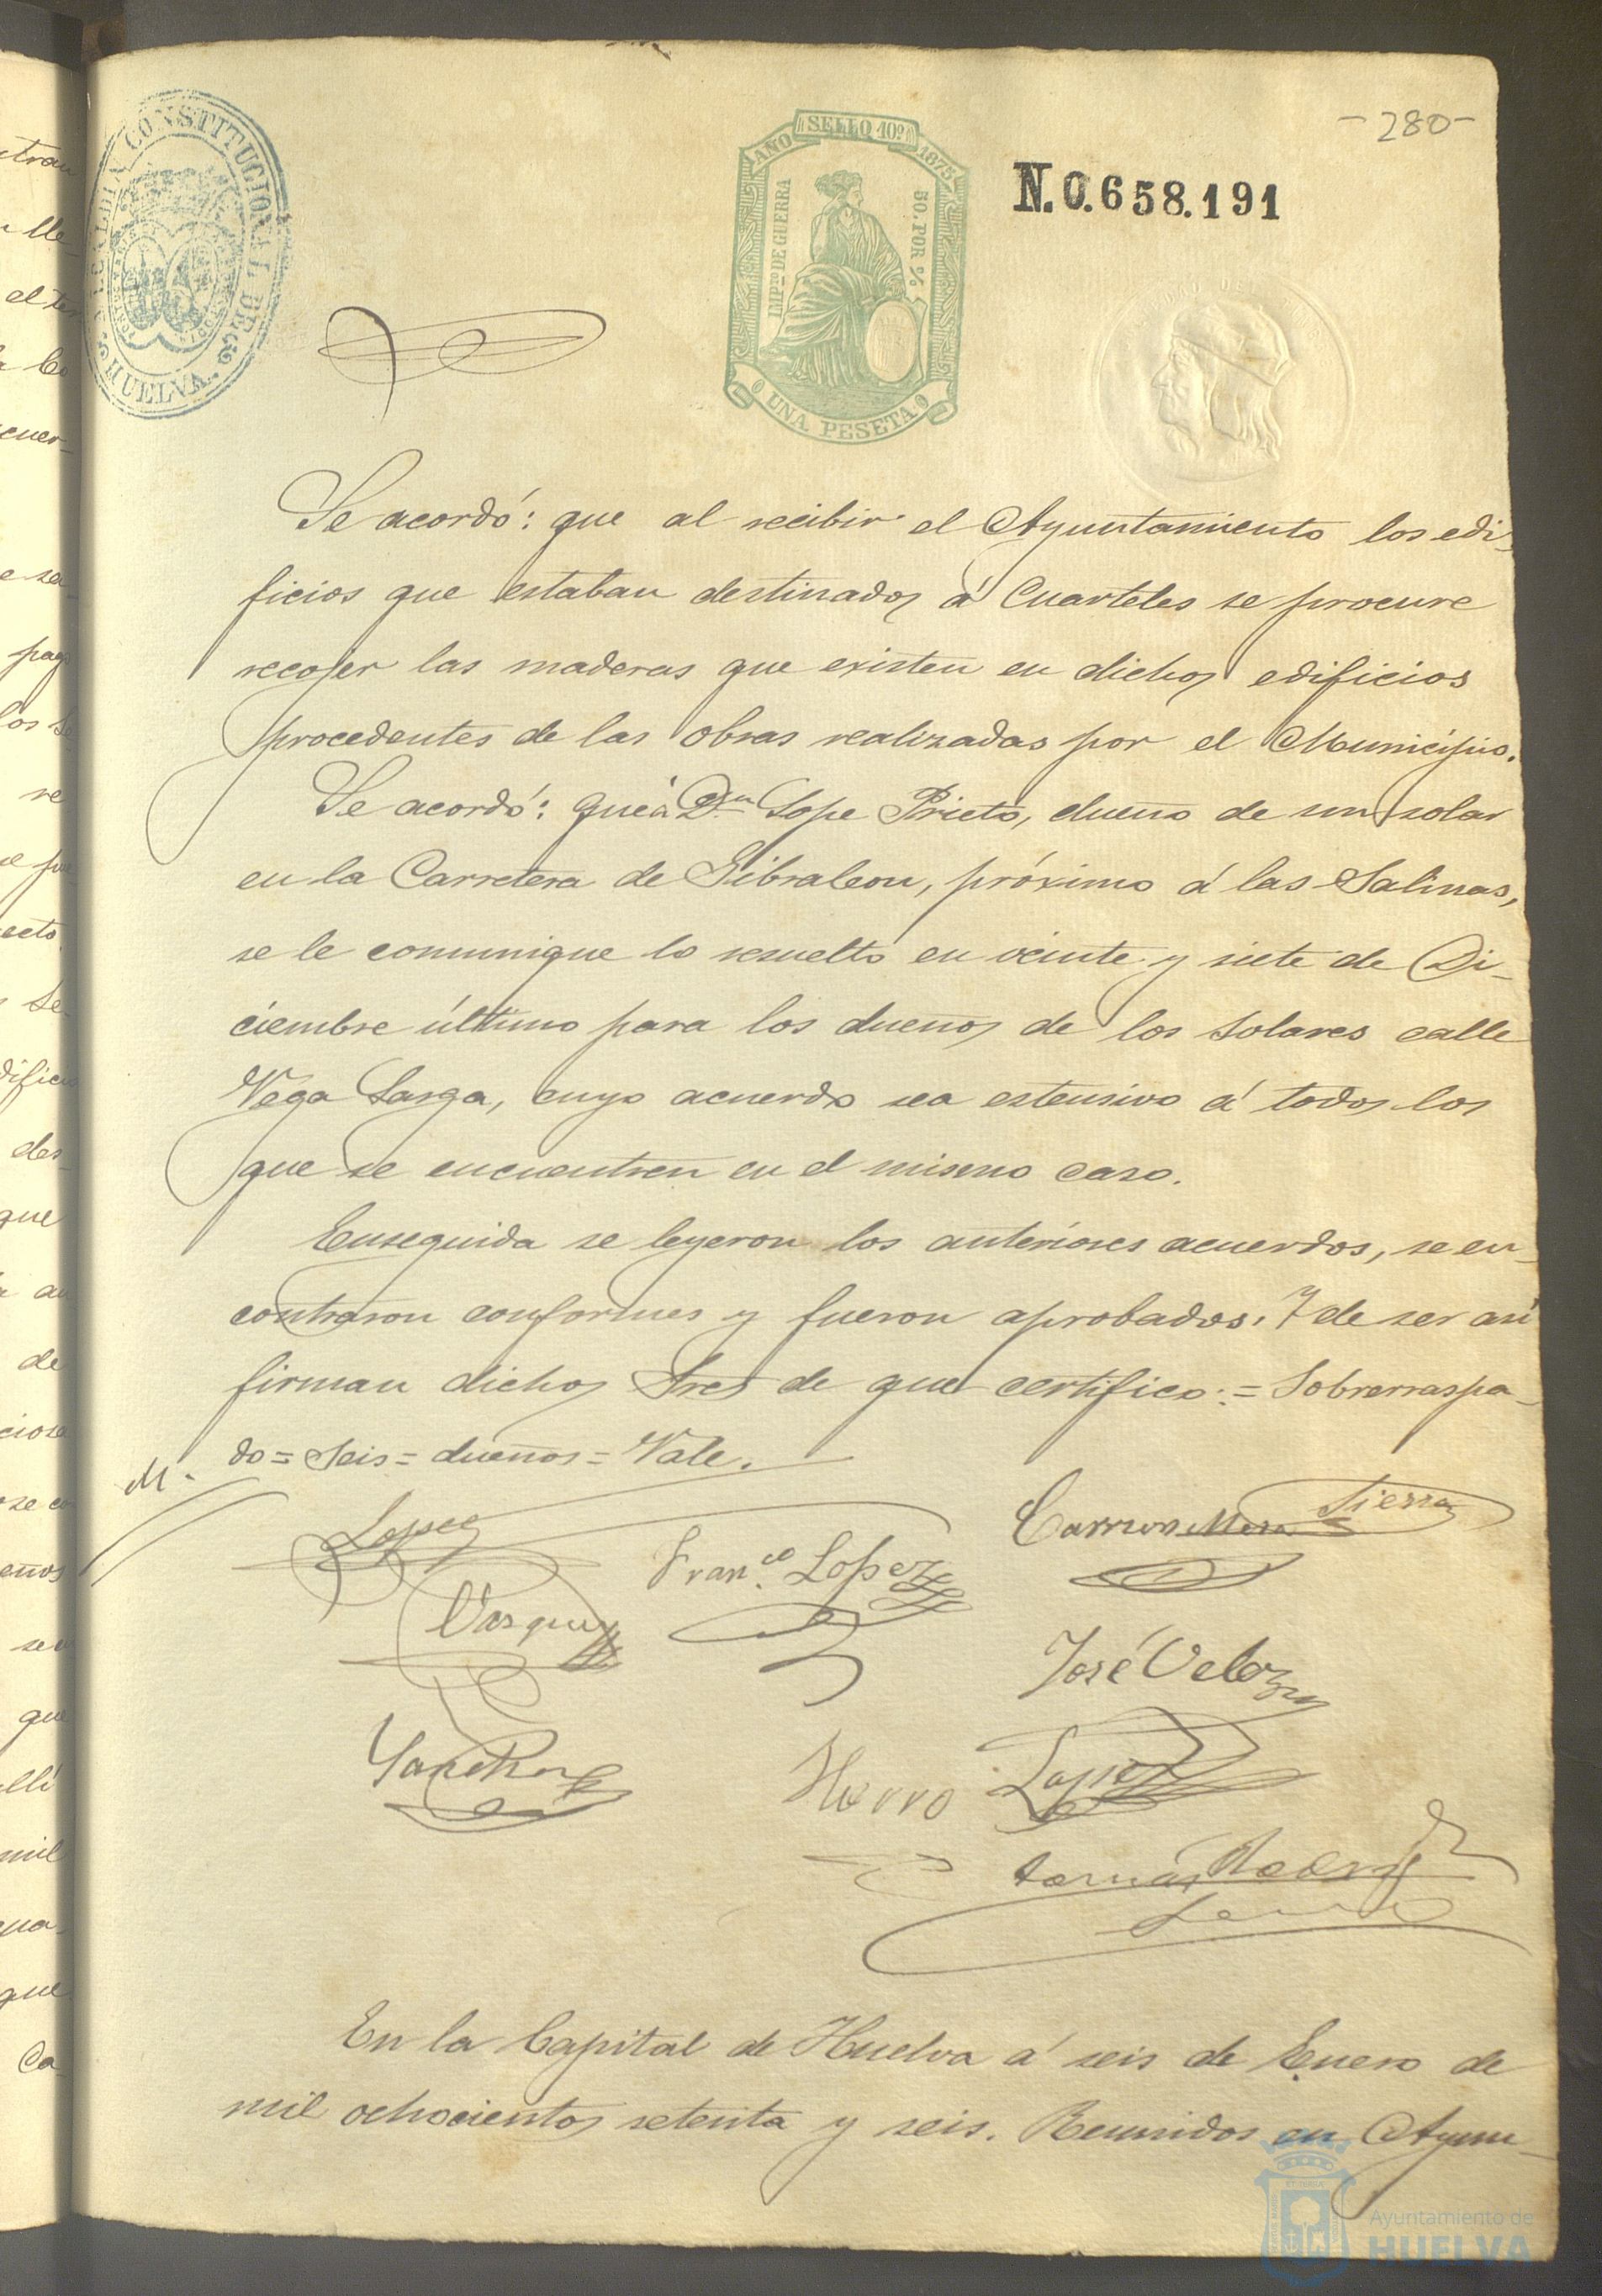 -280-
ALCALDIA CONSTITUCIONAL DE
HUELVA.
SELLO 10º
AÑO 1875
IMPTO DE GUERRA
50. POR %
UNA PESETA
N.0.658.191
Se acordó: que al recibir el Ayuntamiento los edi-
ficios que estaban destinados á Cuarteles se procure
recojer las maderas que existen en dichos edificios
procedentes de las obras realizadas por el Municipio.
Se acordó: que á Dn Lope Prieto, dueño de un solar
en la Carretera de Gibraleon, próximo á las Salinas,
se le comunique lo resuelto en veinte y siete de Di-
ciembre último para los dueños de los solares calle
Vega Larga, cuyo acuerdo sea estensivo á todos los
que se encuentren en el mismo caso.
Enseguida se leyeron los anteriores acuerdos, se en-
contraron conformes y fueron aprobados. Y de ser asi
firman dichos Sres de que certifico:= Sobrerraspa-
do= Seis= dueños= Vale.
M.
Lopez
Franco. Lopez
Carrion Mesa
Tierra
Vazquez
José Veloz
Sanchez
Horro
Lopez
Tomás Rodrig
En la Capital de Huelva á seis de Enero de
mil ochocientos setenta y seis. Reunidos en Ayun-
Ayuntamiento de
HUELVA